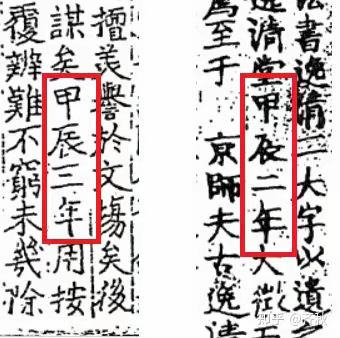 擅美譽於文場矣後
謀矣甲辰三年周按
覆辨難不窮未幾除
書逸二大字以遺
逸清堂甲辰二年大徵
至于京師夫古逸
知乎